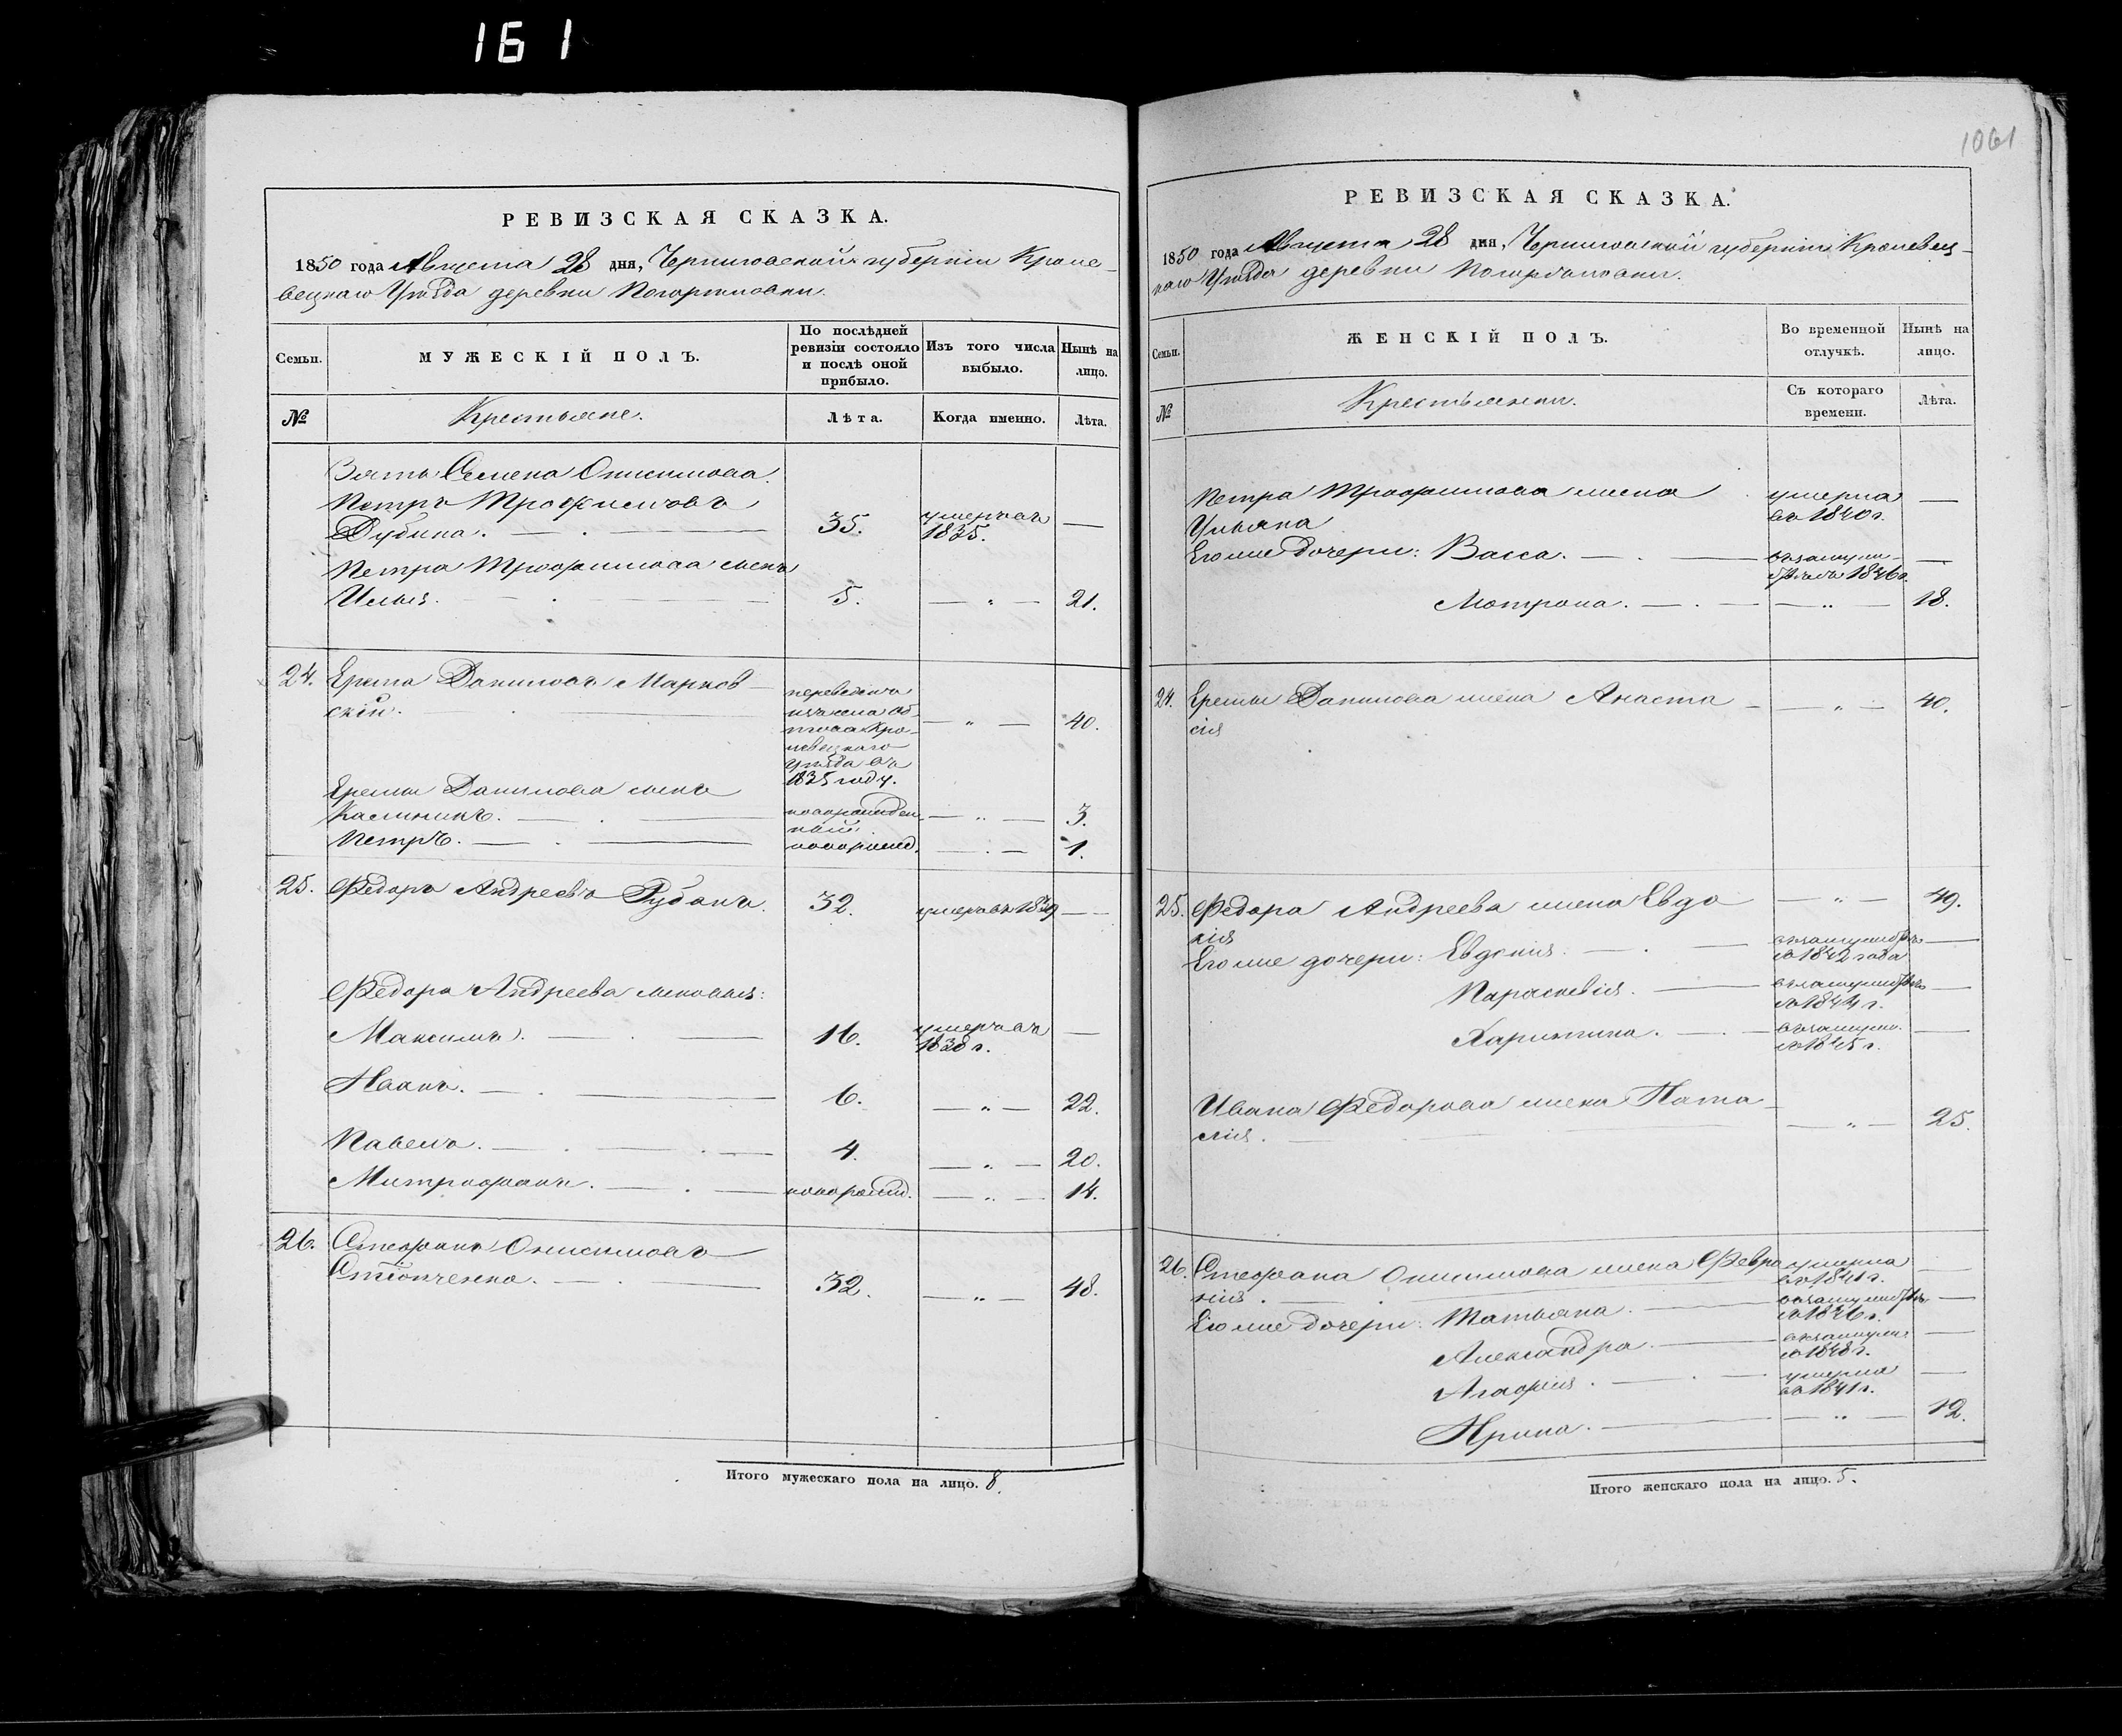 161
РЕВИЗСКАЯ СКАЗКА.
1850 года Августа 28 дня, Черниговской губерніи Кроле-
вецкаго Уѣзда деревни Погориловки.
Семьи.
МУЖЕСКІЙ ПОЛЪ.
По послѣдней
ревизіи состояло
и послѣ оной
прибыло.
Изъ того числа
выбыло.
Нынѣ на
лицо.
№
Крестьяне.
Лѣта.
Когда именно.
Лѣта.
Зять Семена Онисимова
Петръ Трофимовъ
Дубина. 35. умеръ въ —
1835.
Петра Трофимова сынъ
Илья. 5. — „ — 21.
24. Ерема Даниловъ Марков-
скій. переведенъ
изъ села
Кро-
левецкаго
уѣзда въ
1835 году. — „ — 40.
Еремы Данилова сынъ
Калиникъ. новорожден-
ный. — „ — 3.
Петръ. новорожд. — „ — 1.
25. Федоръ Андреевъ Рубанъ. 32. умеръ въ 1839 —
Федора Андреева сыновья:
Максимъ. 16. умеръ въ —
1838 г.
Иванъ. 6. — „ — 22.
Павелъ. 4. — „ — 20.
Митрофанъ. новорожд. — „ — 14.
26. Стефанъ Онисимовъ
32. — „ — 48.
Итого мужескаго пола на лицо. 8.
1061
РЕВИЗСКАЯ СКАЗКА.
1850 года Августа 28 дня, Черниговской губерніи Кролевец-
каго Уѣзда деревни
Семьи.
ЖЕНСКІЙ ПОЛЪ.
Во временной
отлучкѣ.
Нынѣ на
лицо.
№
Крестьянки.
Съ котораго
времени.
Лѣта.
Петра Трофимова жена умерла —
Ульяна въ 1840 г.
Его же дочери: Васса. въ замуже- —
ствѣ съ 1846 г.
Мотрона. — „ — 18.
24. Еремы Данилова жена Анаста- — „ — 40.
сія
25. Федора Андреева жена Евдо- — „ — 49.
кія
Его же дочери: Евдокія. въ замужествѣ —
съ 1842 года
Параскевія. въ замужествѣ —
съ 1844 г.
Харитина. въ замуже. —
съ 1845 г.
Ивана Федорова жена Ната-
лія. — „ — 25.
26. Стефана Онисимова жена Февро- умерла —
нія. въ 1841 г.
Его же дочери: Татьяна. въ замужествѣ —
съ 1846 г.
Александра. въ замуже —
съ 1848 г.
Агафія. умерла —
въ 1841 г.
Ирина. — „ — 12.
Итого женскаго пола на лицо. 5.